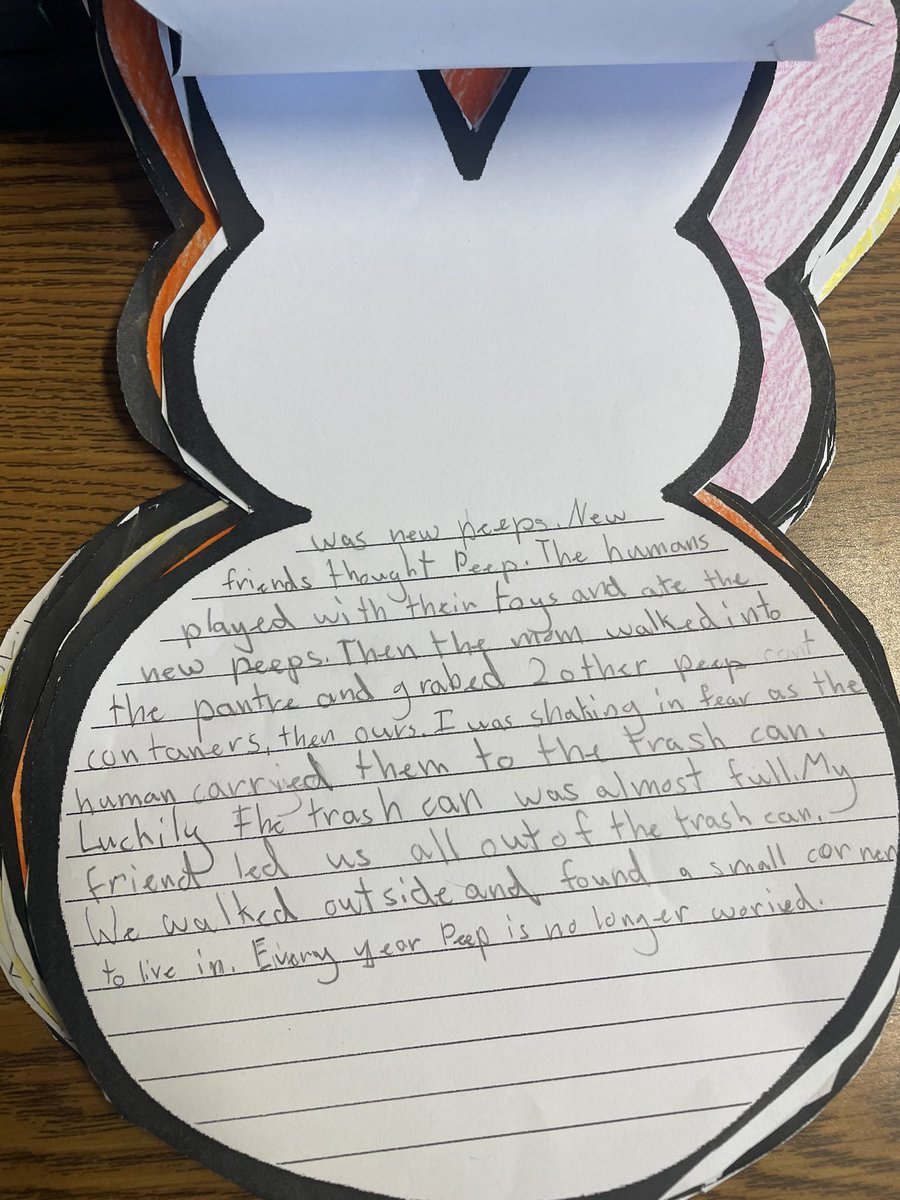 was new peeps. New
friends thought Peep. The humans
played with their toys and ate the
new peeps. Then the mom walked into
the pantre and grabed 2 other peep cont
contaners, then ours. I was shaking in fear as the
human carryied them to the trash can.
Luchily the trash can was almost full. My
friend led us all out of the trash can.
We walked outside and found a small corner
to live in. Every year Peep is no longer woried.